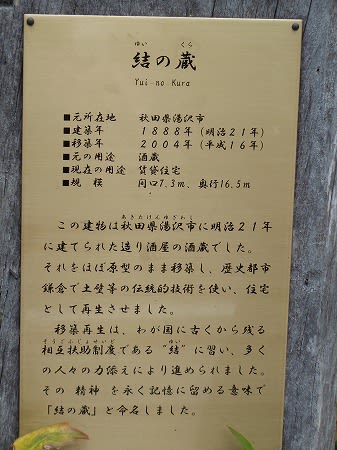 ゆい くら
結の蔵
Yui no Kura
■元所在地 秋田県湯沢市
■建築年 1888年(明治21年)
■移築年 2004年(平成16年)
■元の用途 酒蔵
■現在の用途 賃貸住宅
■規 模 間口7.3m、奥行16.5m
あきたけんゆざわし
この建物は秋田県湯沢市に明治21年
に建てられた造り酒屋の酒蔵でした。
それをほぼ原型のまま移築し、歴史都市
鎌倉で土壁等の伝統的技術を使い、住宅
として再生させました。
移築再生は、わが国に古くから残る
そうごふじょせいど ゆい
相互扶助制度である"結"に習い、多く
の人々の力添えにより進められました。
その 精神 を永く記憶に留める意味で
「結の蔵」と命名しました。